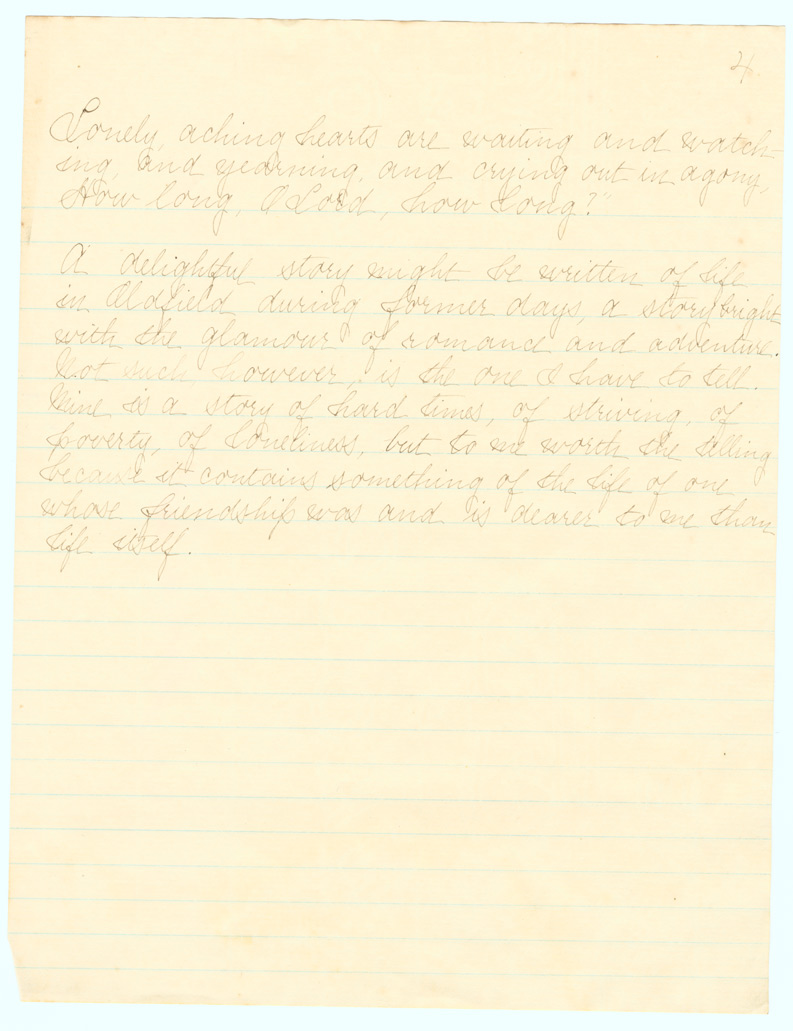 4
Lonely, aching hearts are waiting and watch-
ing, and yearning, and crying out in agony,
How long, O Lord, how long?"
A delightful story might be written of life
in Oldfield during former days, a story bright
with the glamour of romance and adventure.
Not such, however, is the one I have to tell.
Mine is a story of hard times, of striving, of
poverty, of loneliness, but to me worth the telling
because it contains something of the life of one
whose friendship was and is dearer to me than
life itself.